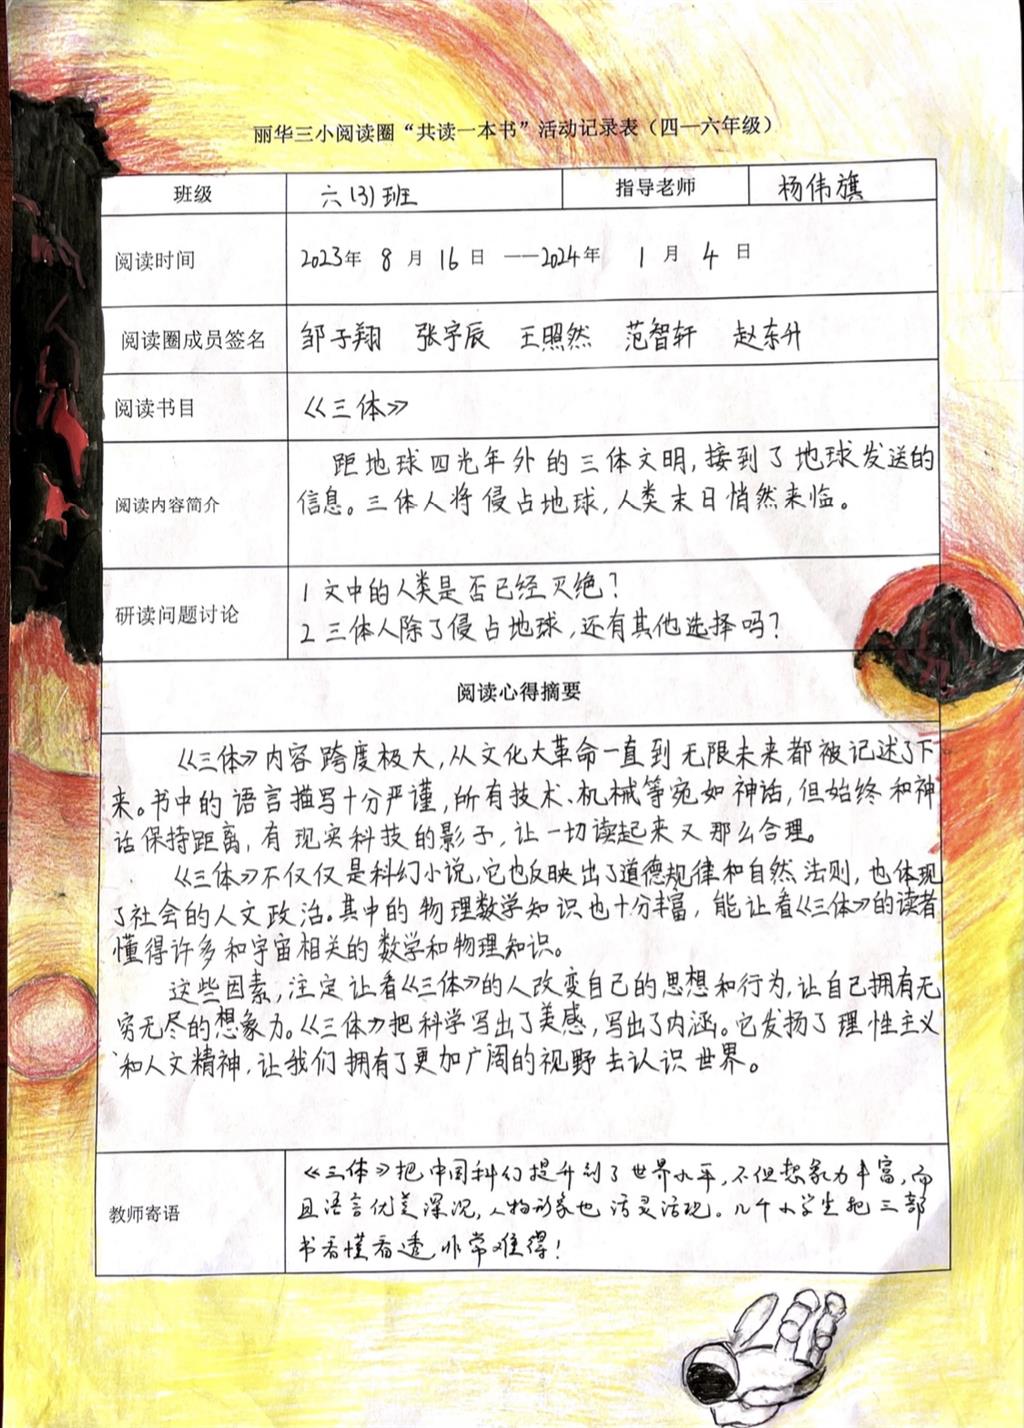 丽华三小阅读圈“共读一本书”活动记录表（四—六年级）
班级 六(3)班 指导老师 杨伟旗
阅读时间 2023年 8 月 16 日 ——2024年 1 月 4 日
阅读圈成员签名 邹子翔 张宇辰 王照然 范智轩 赵东升
阅读书目 《三体》
阅读内容简介
距地球四光年外的三体文明,接到了地球发送的
信息。三体人将侵占地球,人类末日悄然来临。
研读问题讨论
1 文中的人类是否已经灭绝?
2 三体人除了侵占地球,还有其他选择吗?
阅读心得摘要
《三体》内容跨度极大,从文化大革命一直到无限未来都被记述了下
来。书中的语言描写十分严谨,所有技术、机械等宛如神话,但始终和神
话保持距离,有现实科技的影子,让一切读起来又那么合理。
《三体》不仅仅是科幻小说,它也反映出了道德规律和自然法则,也体现
了社会的人文政治。其中的物理数学知识也十分丰富,能让看《三体》的读者
懂得许多和宇宙相关的数学和物理知识。
这些因素,注定让看《三体》的人改变自己的思想和行为,让自己拥有无
穷无尽的想象力。《三体》把科学写出了美感,写出了内涵。它发扬了理性主义
和人文精神,让我们拥有了更加广阔的视野去认识世界。
教师寄语
《三体》把中国科幻提升到了世界水平,不但想象力丰富,而
且语言优美深沉,人物形象也活灵活现。几个小学生把三部
书看懂看透非常难得!